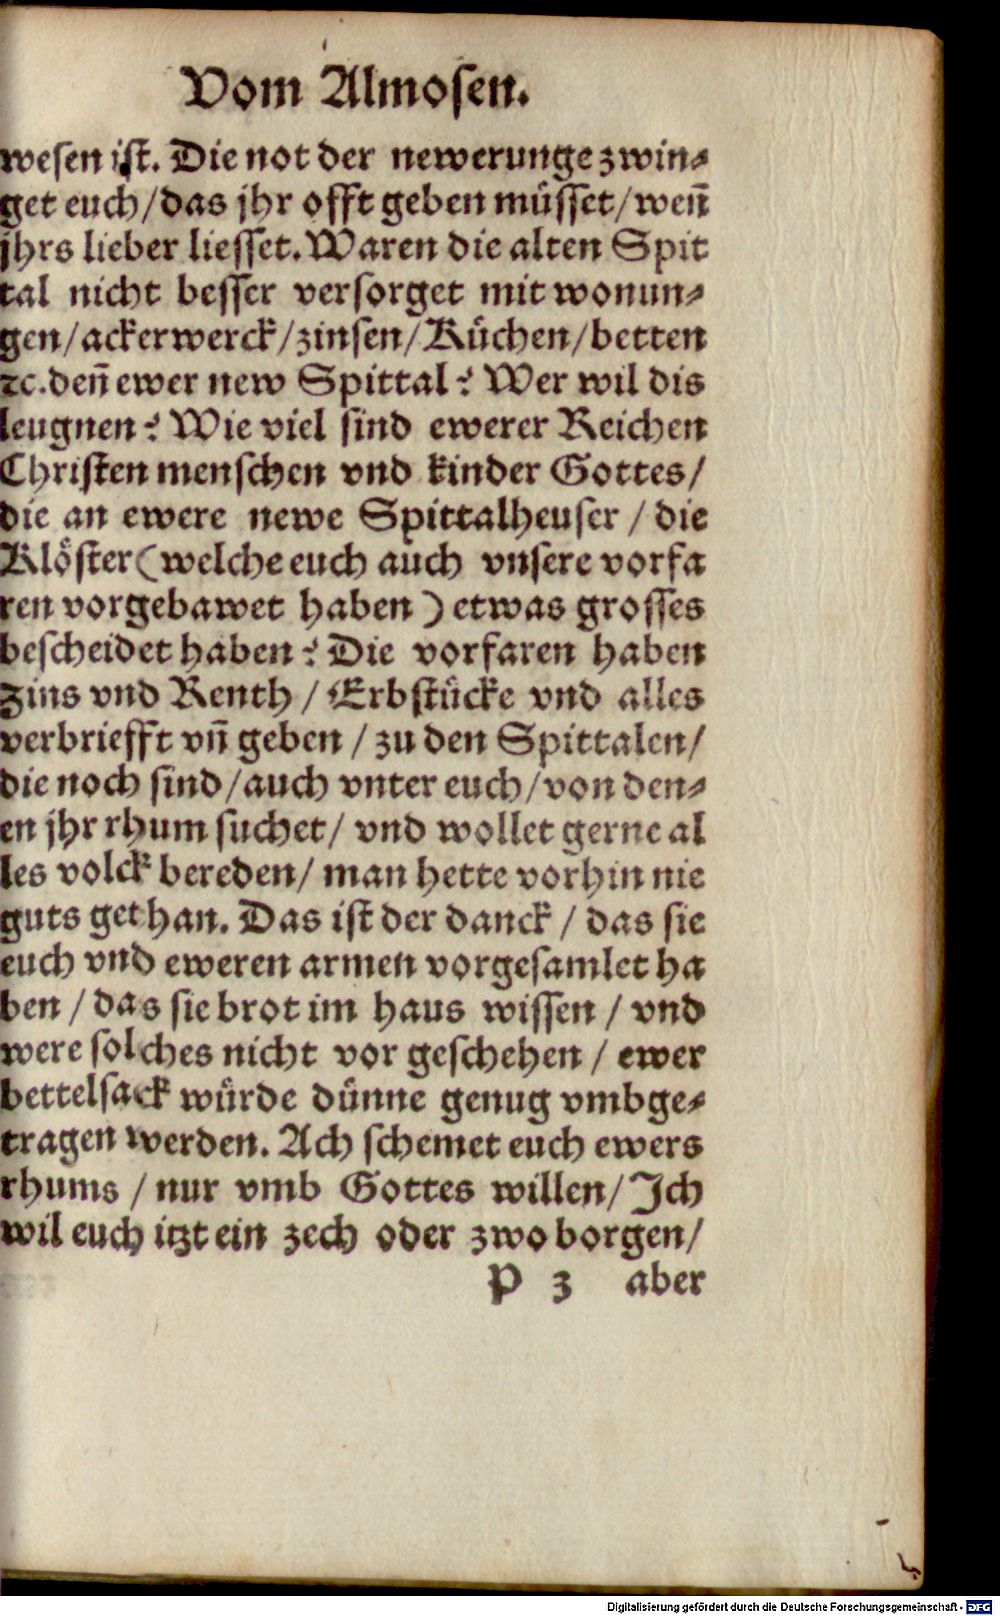 Vom Almosen.
wesen ist. Die not der newerunge zwin⸗
get euch/das jhr offt geben müsset/weñ
jhrs lieber liesset. Waren die alten Spit
tal nicht besser versorget mit wonun⸗
gen/ackerwerck/zinsen/Küchen/betten
ꝛc.deñ ewer new Spittal? Wer wil dis
leugnen? Wie viel sind ewerer Reichen
Christen menschen vnd kinder Gottes/
die an ewere newe Spittalheuser / die
Klöster (welche euch auch vnsere vorfa
ren vorgebawet haben) etwas grosses
bescheidet haben? Die vorfaren haben
Zins vnd Renth / Erbstücke vnd alles
verbriefft vñ geben / zu den Spittalen/
die noch sind/auch vnter euch/von den⸗
en jhr rhum suchet/ vnd wollet gerne al
les volck bereden/ man hette vorhin nie
guts gethan. Das ist der danck / das sie
euch vnd eweren armen vorgesamlet ha
ben / das sie brot im haus wissen / vnd
were solches nicht vor geschehen / ewer
bettelsack würde dünne genug vmbge⸗
tragen werden. Ach schemet euch ewers
rhums / nur vmb Gottes willen/ Ich
wil euch itzt ein zech oder zwo borgen/
P 3 aber
Digitalisierung gefördert durch die Deutsche Forschungsgemeinschaft - DFG